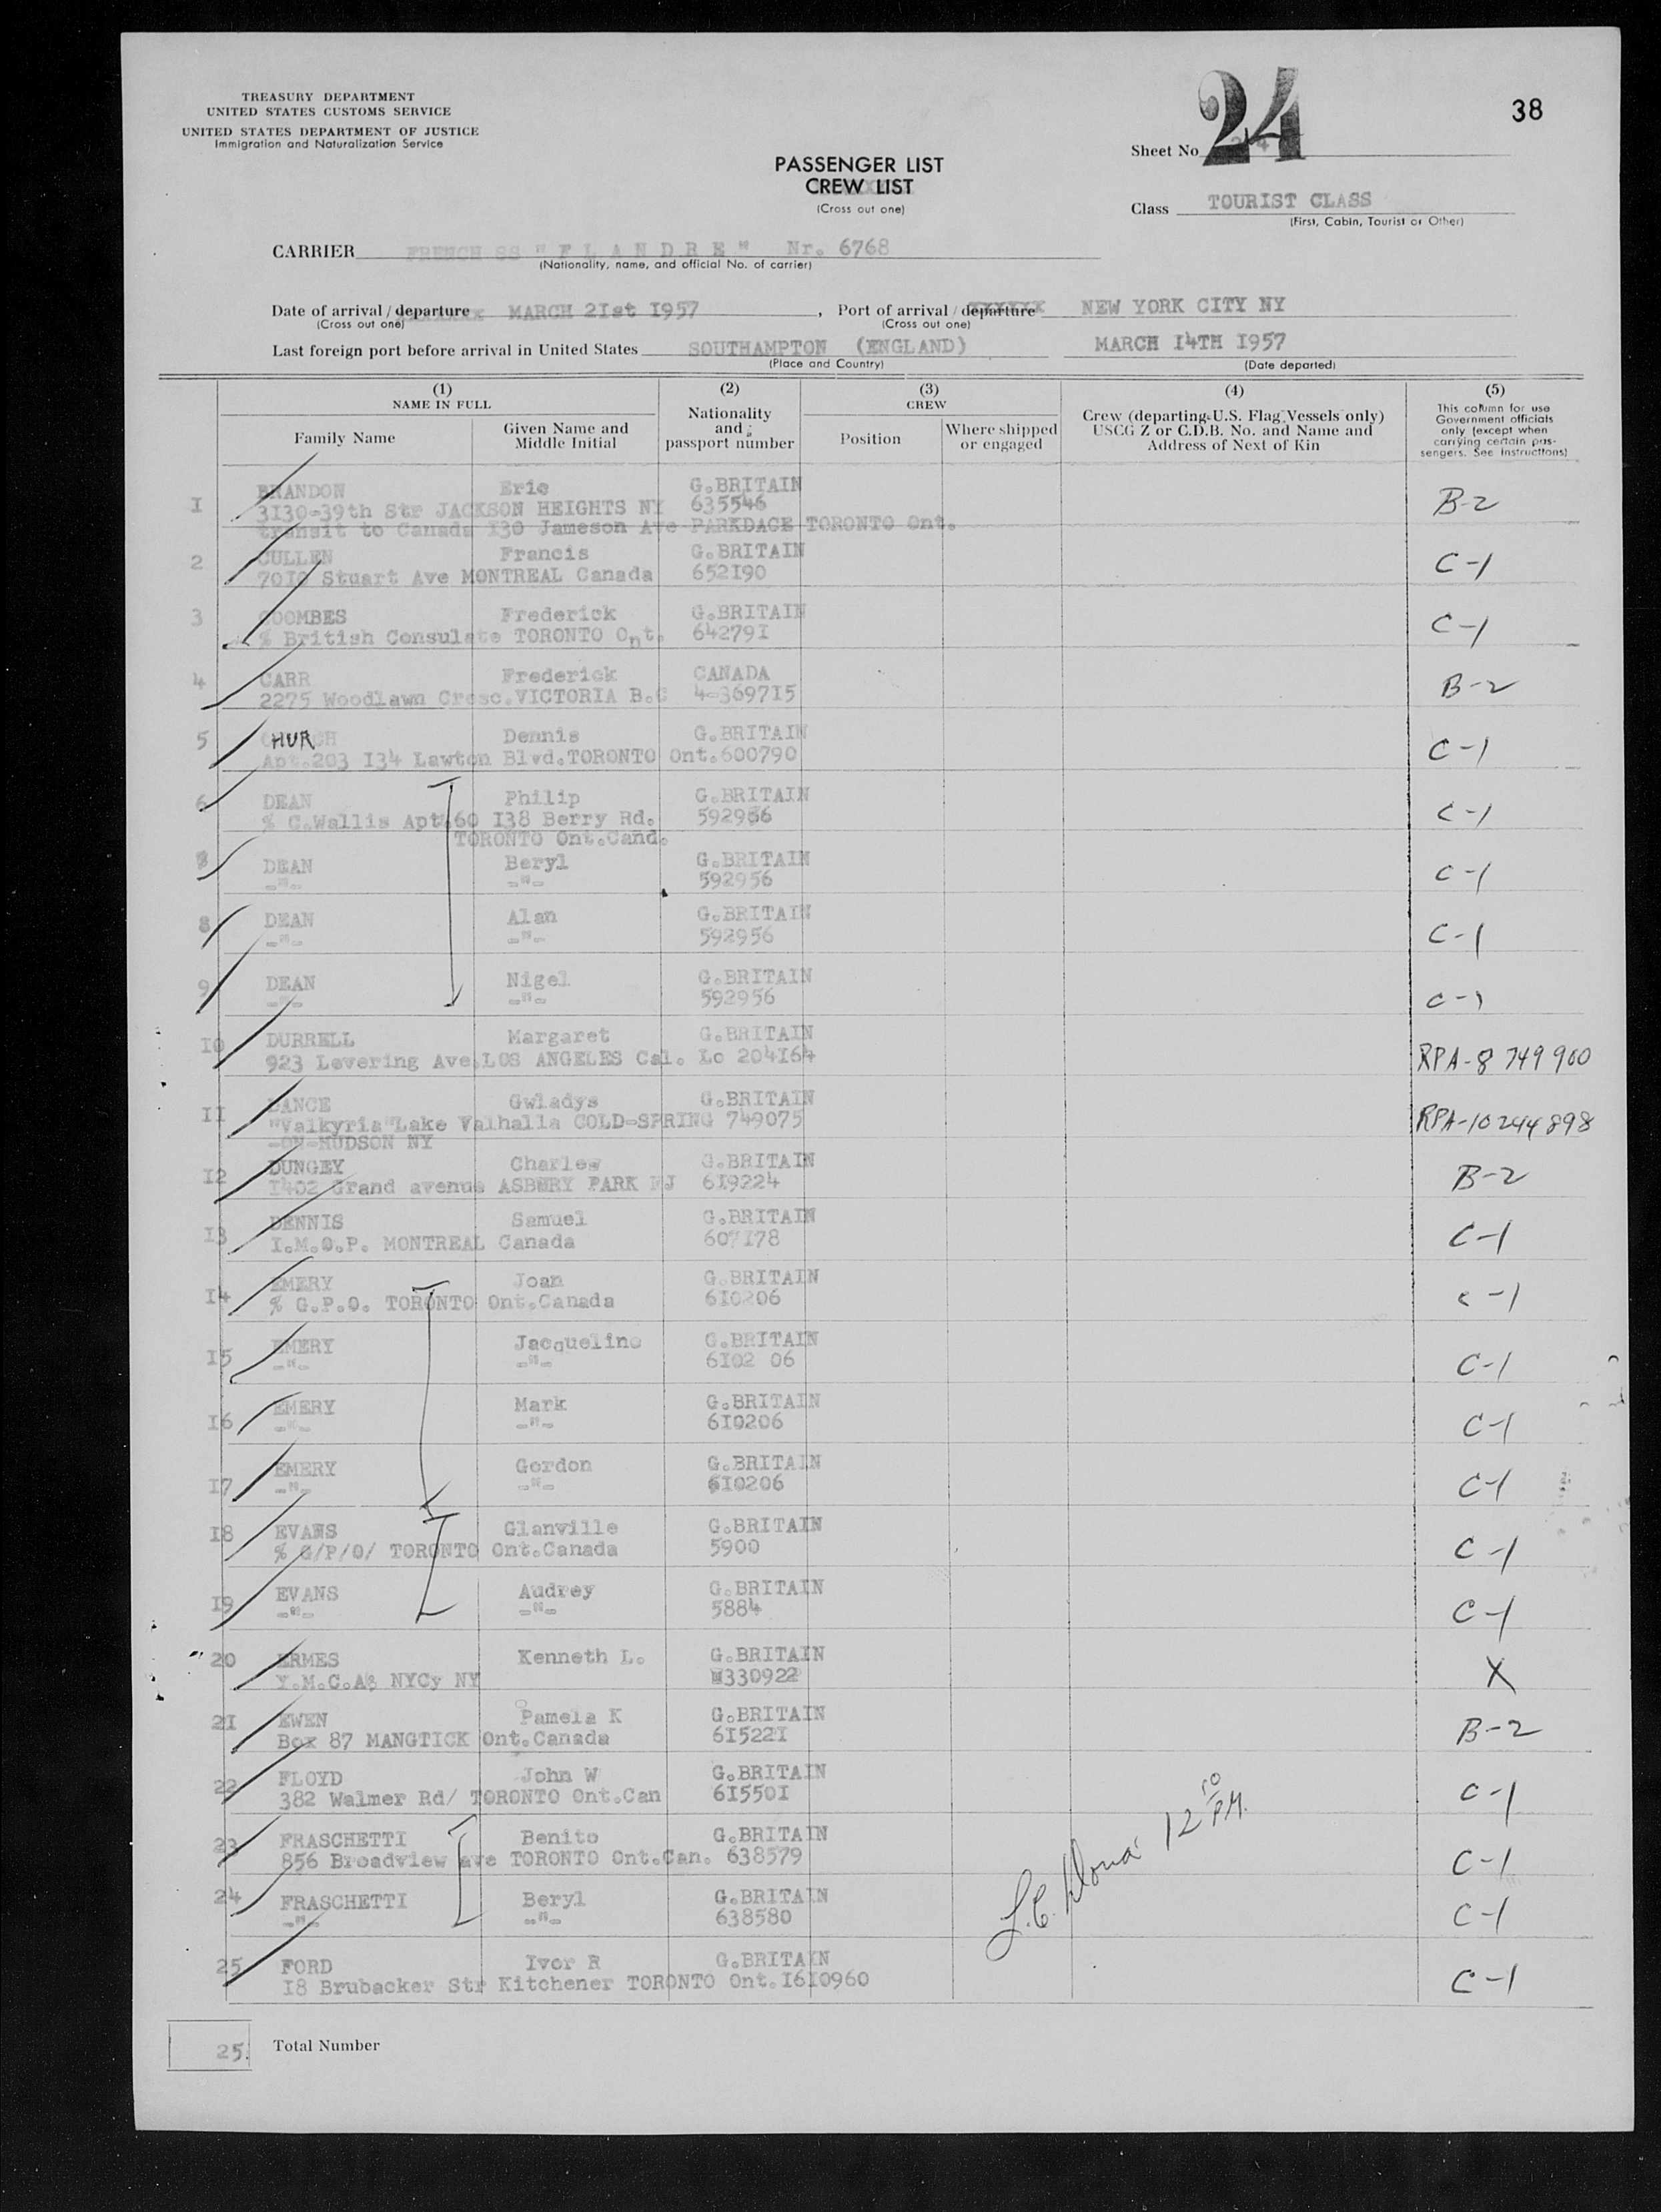 TREASURY DEPARTMENT
UNITED STATES CUSTOMS SERVICE
UNITED STATES DEPARTMENT OF JUSTICE
Immigration and Naturalization Service
38
Sheet No. 24
PASSENGER LIST
CREW LIST
(Cross out one)
Class TOURIST CLASS
(First, Cabin, Tourist or Other)
CARRIER FRENCH SS "F L A N D R E" Nr. 6768
(Nationality, name, and official No. of carrier)
Date of arrival / departure MARCH 2Ist I957, Port of arrival / departure NEW YORK CITY NY
(Cross out one) (Cross out one)
Last foreign port before arrival in United States SOUTHAMPTON (ENGLAND) MARCH I4TH I957
(Place and Country) (Date departed)
(1) (2) (3) (4) (5)
NAME IN FULL
Family Name
Given Name and Middle Initial
Nationality and passport number
CREW
Position
Where shipped or engaged
Crew (departing U.S. Flag Vessels only)
USCG Z or C.D.B. No. and Name and
Address of Next of Kin
This column for use
Government officials
only (except when
carrying certain pas-
sengers. See Instructions)
I BRANDON Eric G.BRITAIN B-2
3I30-39th Str JACKSON HEIGHTS NY 635546
transit to Canada I30 Jameson Ave PARKDAGE TORONTO Ont.
2 CULLEN Francis G.BRITAIN C-1
70I0 Stuart Ave MONTREAL Canada 652I90
3 COOMBES Frederick G.BRITAIN C-1
% British Consulate TORONTO Ont. 64279I
4 CARR Frederick CANADA B-2
2275 Woodlawn Cresc.VICTORIA B.C 4-3697I5
5 CHURCH Dennis G.BRITAIN C-1
Apt.203 I34 Lawton Blvd.TORONTO Ont.600790
6 DEAN Philip G.BRITAIN C-1
% C.Wallis Apt 60 I38 Berry Rd. 592956
TORONTO Ont.Cand.
DEAN Beryl G.BRITAIN C-1
-"- -"- 592956
8 DEAN Alan G.BRITAIN C-1
-"- -"- 592956
9 DEAN Nigel G.BRITAIN C-1
-"- -"- 592956
I0 DURRELL Margaret G.BRITAIN
923 Levering Ave.LOS ANGELES Cal. Lo 204I64 RPA-8 749 900
II DANCE Gwladys G.BRITAIN
"Valkyria"Lake Valhalla COLD-SPRING 749075 RPA-10 244 898
-ON-HUDSON NY
I2 DUNGEY Charles G.BRITAIN B-2
I402 Grand avenue ASBURY PARK NJ 6I9224
I3 DENNIS Samuel G.BRITAIN C-1
I.M.O.P. MONTREAL Canada 607I78
I4 EMERY Joan G.BRITAIN C-1
% G.P.O. TORONTO Ont.Canada 6I0206
I5 EMERY Jacqueline G.BRITAIN C-1
-"- -"- 6I02 06
I6 EMERY Mark G.BRITAIN C-1
-"- -"- 6I0206
I7 EMERY Gordon G.BRITAIN C-1
-"- -"- 6I0206
I8 EVANS Glanville G.BRITAIN C-1
% G/P/O/ TORONTO Ont.Canada 5900
I9 EVANS Audrey G.BRITAIN C-1
-"- -"- 5884
20 ERMES Kenneth L. G.BRITAIN X
Y.M.C.A. NYCy NY 330922
2I EWEN Pamela K G.BRITAIN B-2
Box 87 MANGTICK Ont.Canada 6I522I
22 FLOYD John W G.BRITAIN C-1
382 Walmer Rd/ TORONTO Ont.Can 6I550I
23 FRASCHETTI Benito G.BRITAIN C-1
856 Broadview ave TORONTO Ont.Can. 638579
24 FRASCHETTI Beryl G.BRITAIN C-1
-"- -"- 638580
12 10 PM.
25 FORD Ivor R G.BRITAIN C-1
I8 Brubacker Str Kitchener TORONTO Ont.I6I0960
25. Total Number